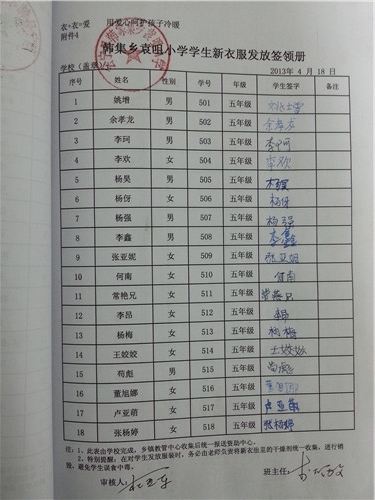 衣+衣=爱 用爱心呵护孩子冷暖
附件4
韩集乡袁咀小学学生新衣服发放签领册
学校（盖章） 2013年 4 月 18 日
序号 姓名 性别 学号 年级 学生签字 备注
1 姚增 男 501 五年级
2 余孝龙 男 502 五年级 余孝龙
3 李珂 男 503 五年级 李珂
4 李欢 女 504 五年级 李欢
5 杨昊 男 505 五年级 杨昊
6 杨伢 女 506 五年级 杨伢
7 杨强 男 507 五年级 杨强
8 李鑫 男 508 五年级 李鑫
9 张亚妮 女 509 五年级 张亚妮
10 何南 女 510 五年级 何南
11 常艳兄 女 511 五年级
12 李昂 女 512 五年级
13 杨梅 女 513 五年级 杨梅
14 王姣姣 女 514 五年级 王姣姣
15 苟彪 男 515 五年级 苟彪
16 董旭娜 女 516 五年级
17 卢亚萌 女 517 五年级 卢亚萌
18 张杨婷 女 518 五年级 张杨婷
注：1、此表由学校完成，乡镇教管中心收集后统一报送资助中心。
2、特别提醒：在对学生发放服装时，务必由老师负责将新衣服里的干燥剂统一收集，进行销
毁，避免学生误食中毒。
审核人： 班主任：